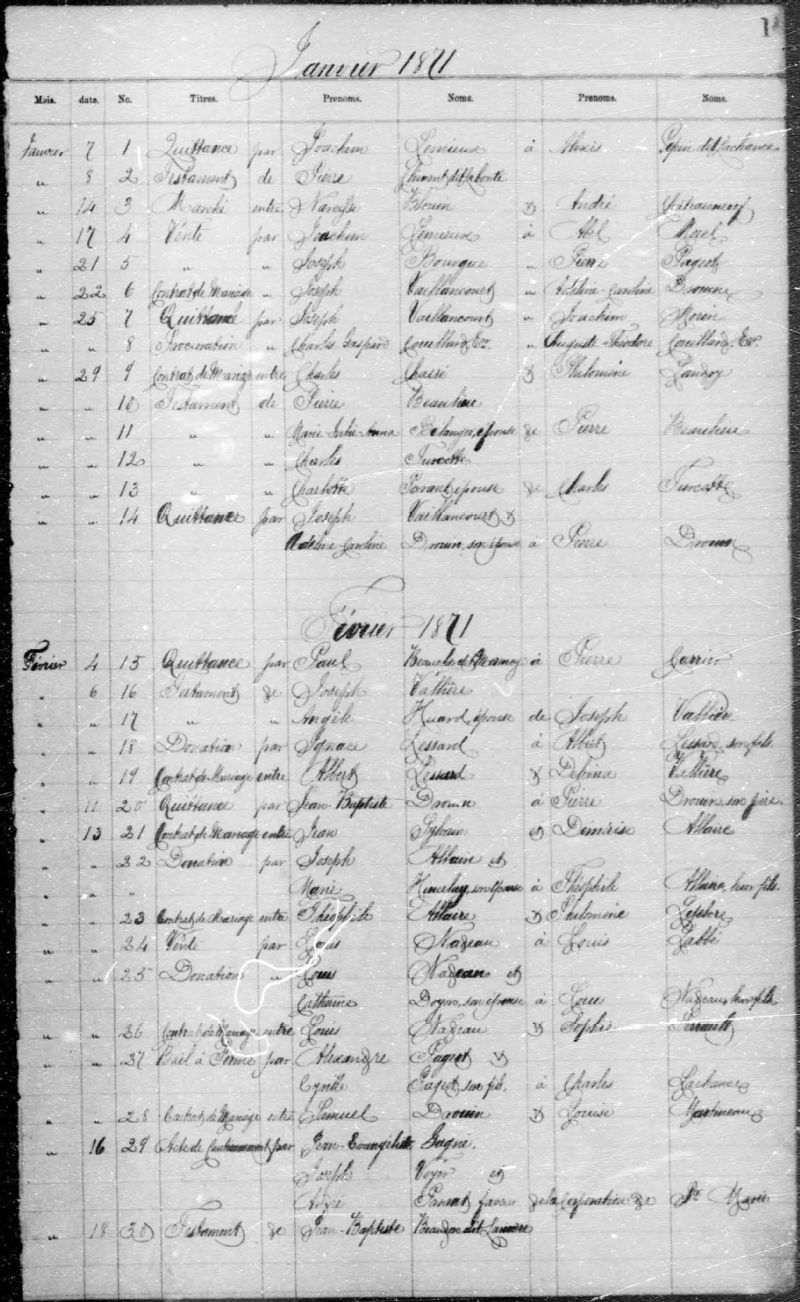 1
Janvier 1871
Mois. date. No. Titres. Prenoms. Noms. Prenoms. Noms.
Janvier 7 1 Quittance par Joachim Lemieux à Alexis Pepin dit Lachance
" 8 2 Testament de Pierre Clement dit Labonté
" 14 3 Marché entre Narcisse Blouin & André
" 17 4 Vente par Joachim Lemieux à Abel
" 21 5 " " Joseph Bourque " Pierre Paget
" 22 6 Contrat de Mariage " Joseph Vaillancourt " Adeline-Caroline Drouin
" 25 7 Quittance par Joseph Vaillancourt " Joachim Morin
" " 8 Procuration " Charles Gaspard Couillard Ecr. " Auguste-Théodore Couillard Ecr.
" 29 9 Contrat de Mariage entre Charles Chassé & Philomène
" " 10 Testament de Pierre Beaulieu
" " 11 " " Marie Julie-Anna Belanger, épouse de Pierre Beaulieu
" " 12 " " Charles Turcotte
" " 13 " " Charlotte Parant, épouse de Charles Turcotte
" " 14 Quittance par Joseph Vaillancourt &
Adeline Caroline Drouin, son épouse à Pierre Drouin
Février 1871
Février 4 15 Quittance par Paul à Pierre Garrin
" 6 16 Testament de Joseph Vallière
" " 17 " " Angèle Huard, épouse de Joseph Vallière
" " 18 Donation par Ignace Lessard à Albert Lessard, son fils
" " 19 Contrat de Mariage entre Albert Lessard & Delvina Vallière
" 11 20 Quittance par Jean-Baptiste Drouin à Pierre Drouin, son frère
" 13 21 Contrat de Mariage entre Jean Sylvain et Démérise Allaire
" " 22 Donation par Joseph Allaire et
" " " Marie son épouse à Théophile Allaire, leur fils
" " 23 Contrat de Mariage entre Théophile Allaire & Philomène Lefebvre
" " 24 Vente par Louis Nadeau à Louis Labbé
" " 25 Donation " Louis Nadeau et
Catherine Doyon, son épouse à Louis Nadeau, leur fils
" " 26 Contrat de Mariage entre Louis Nadeau & Sophie Perrault
" " 27 Bail à Ferme par Alexandre Paget &
Cyrille Paget, son fils à Charles Lachance
" " 28 Contrat de Mariage entre Samuel Drouin & Louise Martineau
" 16 29 Acte de Cautionnement par Jean-Evangéliste Gagné.
Joseph Voyer et
André Parant, faveur de la Corporation de Ste Marie
" 18 30 Testament de Jean-Baptiste